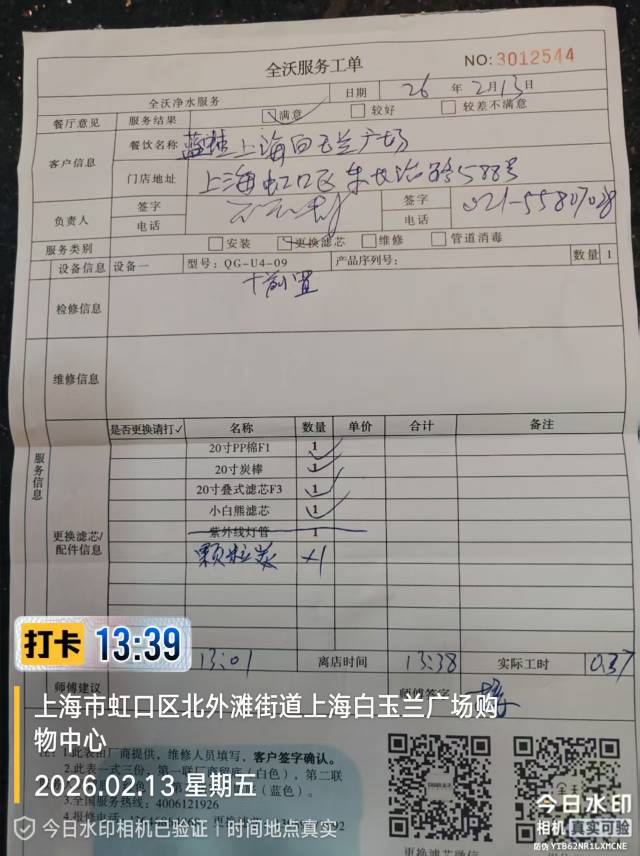 全沃服务工单
NO:3012544
全沃净水服务 日期 26 年 2月13日
餐厅意见 服务结果 满意 较好 较差不满意
客户信息 餐饮名称 蓝蛙上海白玉兰广场
门店地址 上海虹口区东长治路588号
负责人 签字 签字
电话 电话 021-55807028
服务类别 安装 更换滤芯 维修 管道消毒
设备信息 设备一 型号：QG-U4-09 产品序列号： 数量 1
十前置
检修信息
维修信息
服务信息
是否更换请打✓ 名称 数量 单价 合计 备注
20寸PP棉F1 1
20寸炭棒 1
20寸叠式滤芯F3 1
小白熊滤芯 1
更换滤芯/配件信息
紫外线灯管 1
颗粒炭 ×1
打卡 13:39
13:01 离店时间 13:38 实际工时 0.37
师傅建议 师傅签字
上海市虹口区北外滩街道上海白玉兰广场购
物中心
厂商提供，维修人员填写，客户签字确认。
2.此表一式三份，第一联厂商留底（白色），第二联
（蓝色）。
2026.02.13 星期五
3.全国服务热线：4006121926
4.报修电话
今日水印相机已验证｜时间地点真实
今日水印
相机 真实可验
防伪 YIB62NR1LXMCNE